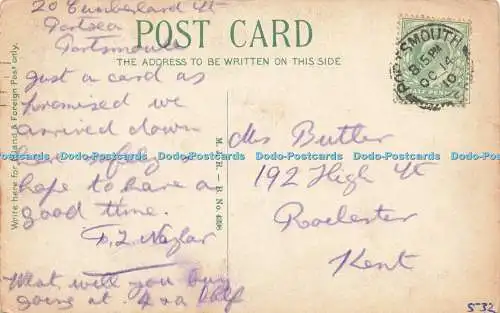 20 Cumberland St
Portsea
Portsmouth
POST CARD
THE ADDRESS TO BE WRITTEN ON THIS SIDE
Write here for Inland & Foreign Post only.
Just a card as
promised we
arrived down
here safely &
hope to have a
good time.
What will you buy
going at 4 & a half
B. No. 4398
Mrs Butler
192 High St
Rochester
Kent
PORTSMOUTH
8.15 PM
OC 14
10
HALF PENNY
Dodo-Postcards Dodo-Postcards Dodo-Postcards Dodo-Postcards Dodo-Postcards
532